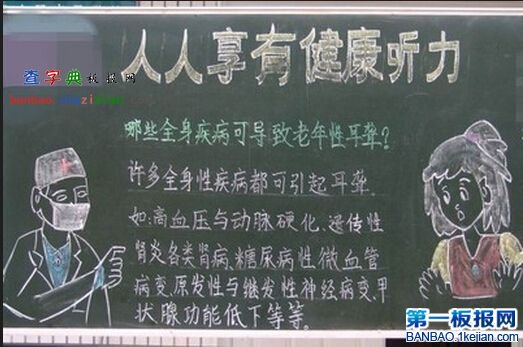 人人享有健康听力
查字典板报网
哪些全身疾病可导致老年性耳聋?
许多全身性疾病都可引起耳聋。
如:高血压与动脉硬化、遗传性
肾炎各类肾病、糖尿病性微血管
病变、原发性与继发性神经病变、甲
状腺功能低下等等。
第一板报网
BANBAO.1kejian.com